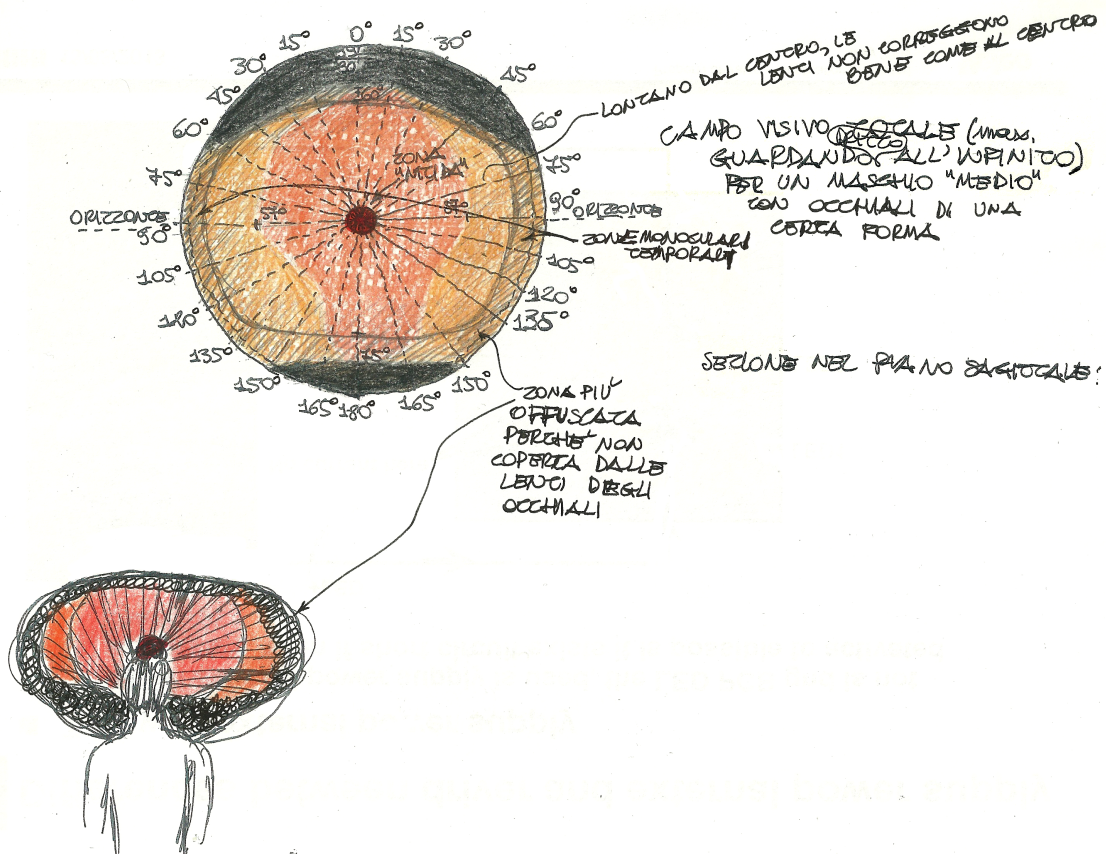 0°
15°
15°
30°
30°
45°
45°
60°
60°
75°
75°
90°
90°
105°
105°
120°
120°
135°
135°
150°
150°
165°
180°
165°
60°
57°
57°
75°
ZONA
"NITIDA"
ORIZZONTE
ORIZZONTE
LONTANO DAL CENTRO, LE
LENTI NON CORREGGONO
BENE COME AL CENTRO
CAMPO VISIVO TOTALE
GUARDANDO ALL'INFINITO)
DRITTO
PER UN MASCHIO "MEDIO"
CON OCCHIALI DI UNA
CERTA FORMA
ZONE MONOCULARI
TEMPORALI
SEZIONE NEL PIANO SAGITTALE:
ZONA PIÙ
OFFUSCATA
PERCHÈ NON
COPERTA DALLE
LENTI DEGLI
OCCHIALI